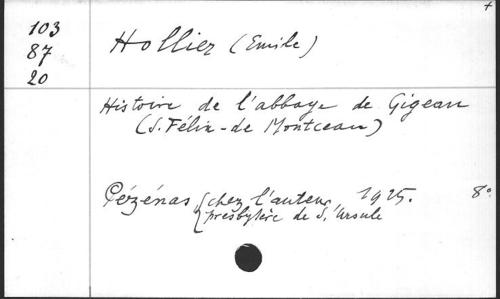 +
103
87
20
Hollier (Emile)
Histoire de l'abbaye de Gigean
(S. Félix-de Montceau)
Pézénas { chez l'auteur, 1925. 8°
presbytère de S. Ursule